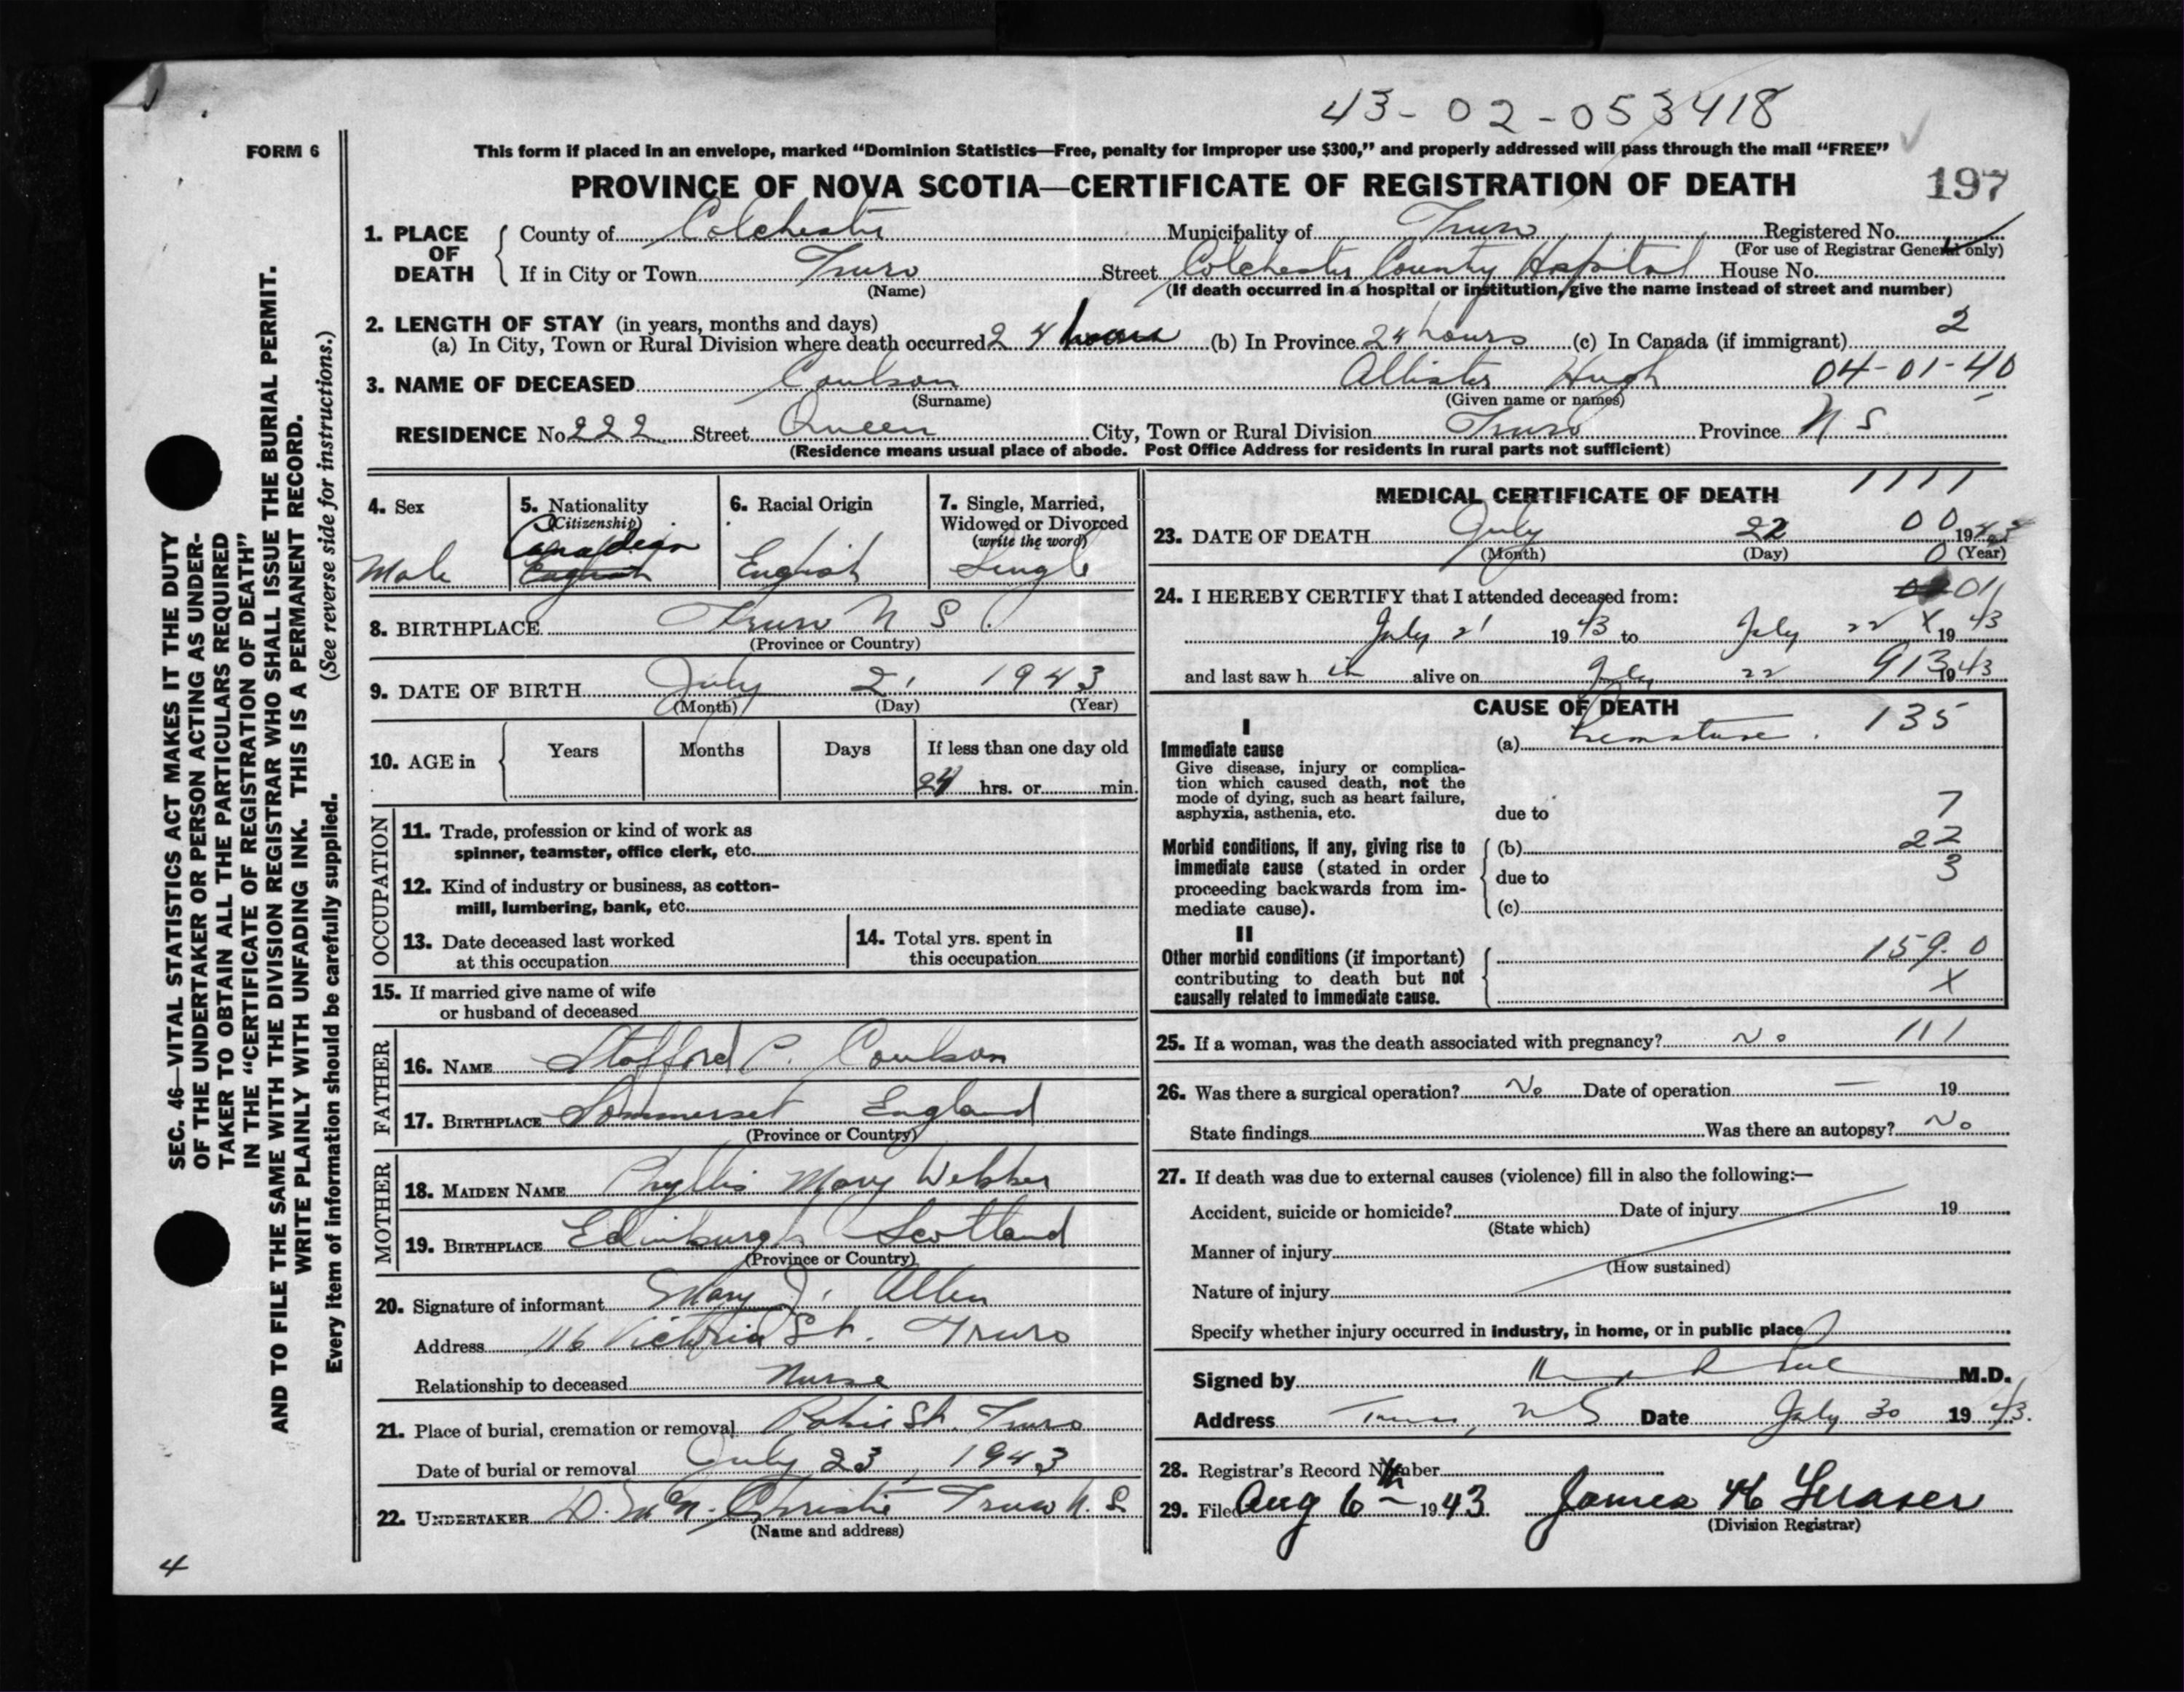 43-02-053418
FORM 6
This form if placed in an envelope, marked “Dominion Statistics—Free, penalty for improper use $300,” and properly addressed will pass through the mail “FREE”
PROVINCE OF NOVA SCOTIA—CERTIFICATE OF REGISTRATION OF DEATH 197
1. PLACE OF DEATH
County of Colchester Municipality of Truro Registered No.
(For use of Registrar General only)
If in City or Town Truro Street Colchester County Hospital House No.
(Name) (If death occurred in a hospital or institution, give the name instead of street and number)
2. LENGTH OF STAY (in years, months and days)
(a) In City, Town or Rural Division where death occurred 24 hours (b) In Province 24 hours (c) In Canada (if immigrant) 2
3. NAME OF DECEASED Coulson Allister Hugh 04-01-40
(Surname) (Given name or names)
RESIDENCE No. 222 Street Queen City, Town or Rural Division Truro Province N S
(Residence means usual place of abode. Post Office Address for residents in rural parts not sufficient)
4. Sex
Male
5. Nationality
(Citizenship)
Canadian
English
6. Racial Origin
English
7. Single, Married,
Widowed or Divorced
(write the word)
Single
8. BIRTHPLACE Truro N S.
(Province or Country)
9. DATE OF BIRTH July 21 1943
(Month) (Day) (Year)
10. AGE in Years Months Days If less than one day old
24 hrs. or min.
OCCUPATION
11. Trade, profession or kind of work as
spinner, teamster, office clerk, etc.
12. Kind of industry or business, as cotton-
mill, lumbering, bank, etc.
13. Date deceased last worked
at this occupation
14. Total yrs. spent in
this occupation
15. If married give name of wife
or husband of deceased
FATHER
16. NAME Stafford P. Coulson
17. BIRTHPLACE Sommerset England
(Province or Country)
MOTHER
18. MAIDEN NAME Phyllis Mary Webber
19. BIRTHPLACE Edinburgh Scotland
(Province or Country)
20. Signature of informant Mary J. Allen
Address 116 Victoria St. Truro
Relationship to deceased Nurse
21. Place of burial, cremation or removal Robie St. Truro
Date of burial or removal July 23, 1943
22. UNDERTAKER D. McN. Christie Truro N. S.
(Name and address)
MEDICAL CERTIFICATE OF DEATH 1111
23. DATE OF DEATH July 22 00 1943
(Month) (Day) 0 (Year)
24. I HEREBY CERTIFY that I attended deceased from: 01
July 21 1943 to July 22 X 1943
and last saw h im alive on July 22 913 1943
CAUSE OF DEATH
I
Immediate cause
Give disease, injury or complica-
tion which caused death, not the
mode of dying, such as heart failure,
asphyxia, asthenia, etc.
(a) Premature. 135
due to 7
Morbid conditions, if any, giving rise to
immediate cause (stated in order
proceeding backwards from im-
mediate cause).
(b) 22
due to 3
(c)
II
Other morbid conditions (if important)
contributing to death but not
causally related to immediate cause.
159.0
X
25. If a woman, was the death associated with pregnancy? No 111
26. Was there a surgical operation? No Date of operation — 19
State findings Was there an autopsy? No
27. If death was due to external causes (violence) fill in also the following:—
Accident, suicide or homicide? Date of injury 19
(State which)
Manner of injury
(How sustained)
Nature of injury
Specify whether injury occurred in industry, in home, or in public place
Signed by M.D.
Address Truro, NS Date July 30 1943.
28. Registrar's Record Number
29. Filed Aug 6th 1943 James H Fraser
(Division Registrar)
SEC. 46—VITAL STATISTICS ACT MAKES IT THE DUTY
OF THE UNDERTAKER OR PERSON ACTING AS UNDER-
TAKER TO OBTAIN ALL THE PARTICULARS REQUIRED
IN THE “CERTIFICATE OF REGISTRATION OF DEATH”
AND TO FILE THE SAME WITH THE DIVISION REGISTRAR WHO SHALL ISSUE THE BURIAL PERMIT.
WRITE PLAINLY WITH UNFADING INK. THIS IS A PERMANENT RECORD.
Every item of information should be carefully supplied. (See reverse side for instructions.)
4